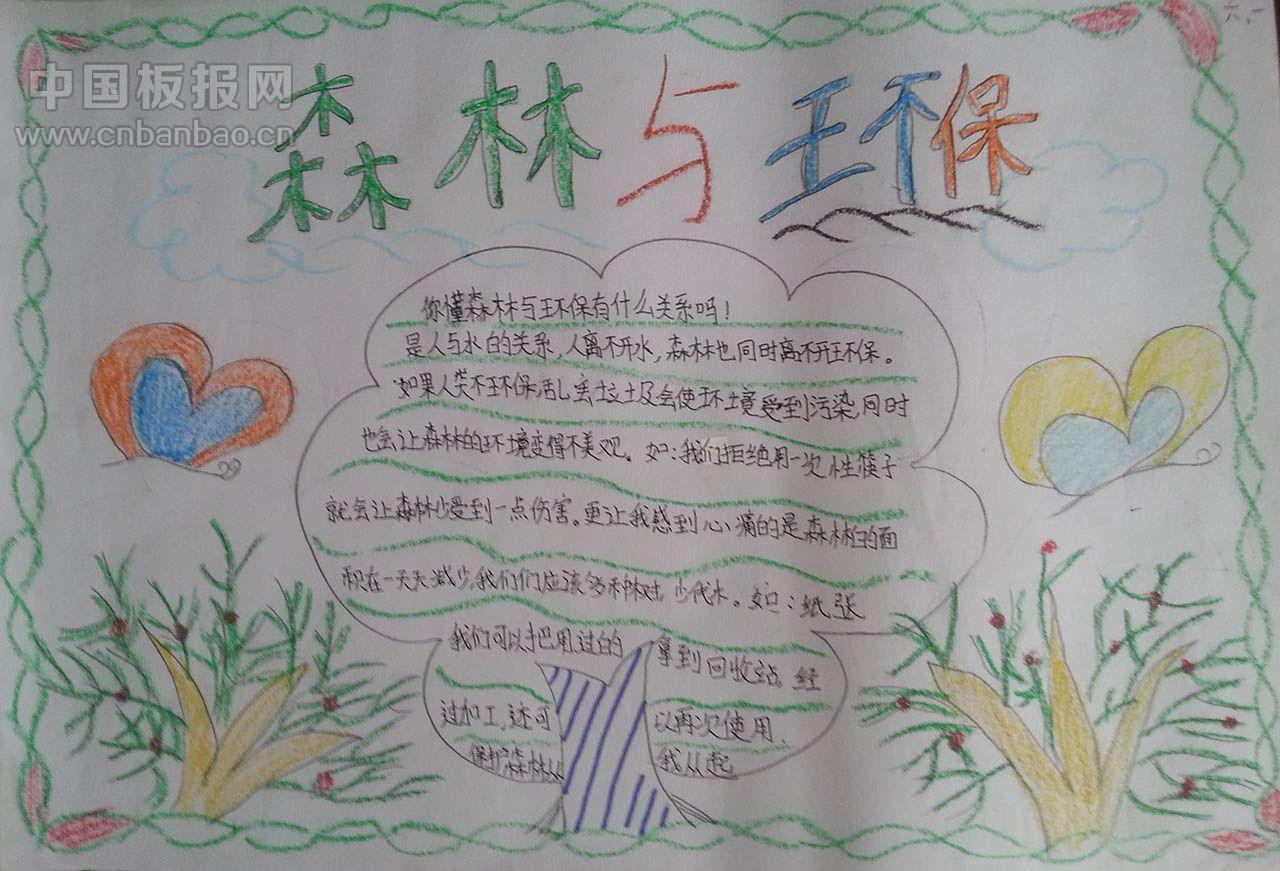 六、一
中国板报网
www.cnbanbao.cn
森林与环保
你懂森林与环保有什么关系吗！
是人与水的关系，人离不开水，森林也同时离不开环保。
如果人类不环保，乱丢垃圾会使环境受到污染，同时
也会让森林的环境变得不美观。如：我们拒绝用一次性筷子
就会让森林少受到一点伤害。更让我感到心痛的是森林的面
积在一天天减少，我们们应该多种树，少伐木。如：纸张
我们可以把用过的 拿到回收站。经
过加工，还可 以再次使用.
保护森林从 我从起